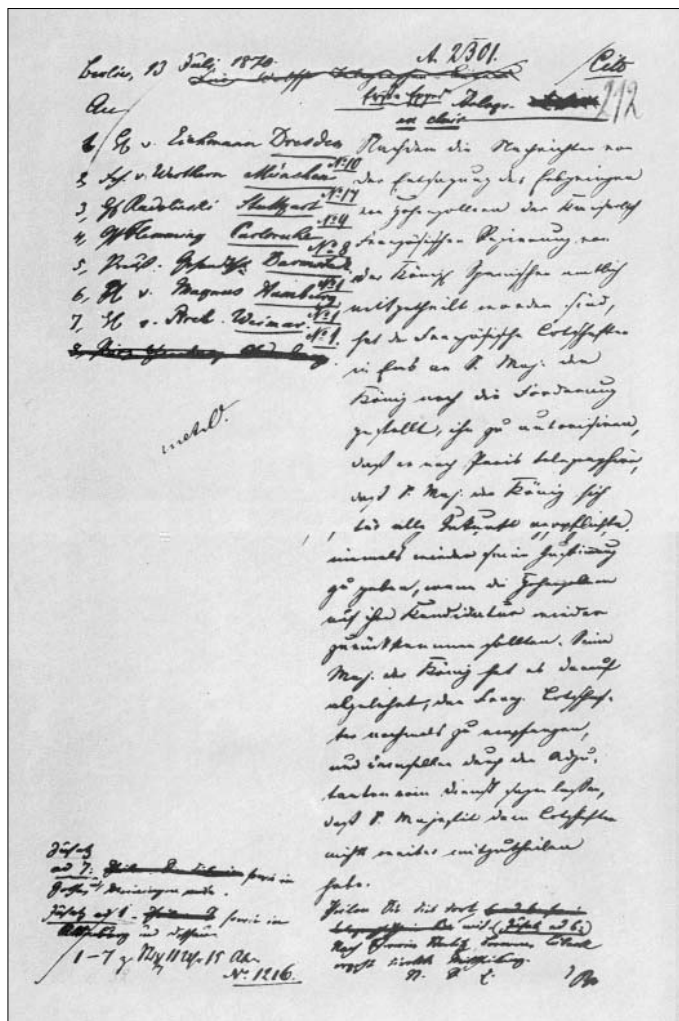 Berlin, 13 Juli 1870.
A. 2301.
Cito
212
An
Telegr.
en clair
1, v. Eichmann Dresden No 10
2, Frh. v. Werthern München No 17
3, Gf Radolinski Stuttgart No 4
4, Gf Flemming Carlsruhe No 8
5, Preuß. Gesandtsch. Darmstadt No 1
6, v. Magnus Hamburg No 1
7, v. Weimar No 1.
Nachdem die Nachrichten von
der Entsagung des Erbprinzen
von Hohenzollern der Kaiserlich
Französischen Regierung von
der Königl Spanischen amtlich
mitgetheilt worden sind,
hat der Französische Botschafter
in Ems an S. Maj. den
König noch die Forderung
gestellt, ihn zu autorisiren,
daß er nach Paris telegraphire,
daß S. Maj. der König sich
für alle Zukunft verpflichte,
niemals wieder seine Zustimmung
zu geben, wenn die Hohenzollern
auf ihre Kandidatur wieder
zurückkommen sollten. Seine
Maj. der König hat es darauf
abgelehnt, den Franz. Botschaf-
ter nochmals zu empfangen,
und demselben durch den Adju-
tanten vom Dienst sagen lassen,
daß S. Majestät dem Botschafter
nichts weiter mitzutheilen
habe.
Zusatz
ad 7: sowie in
Zusatz ad 1. sowie in
Altenburg und Dessau
1-7
No. 1216.
Theilen Sie dies dort
mit. (Zusatz ad 6:)
Mittheilung.
N. d. E.